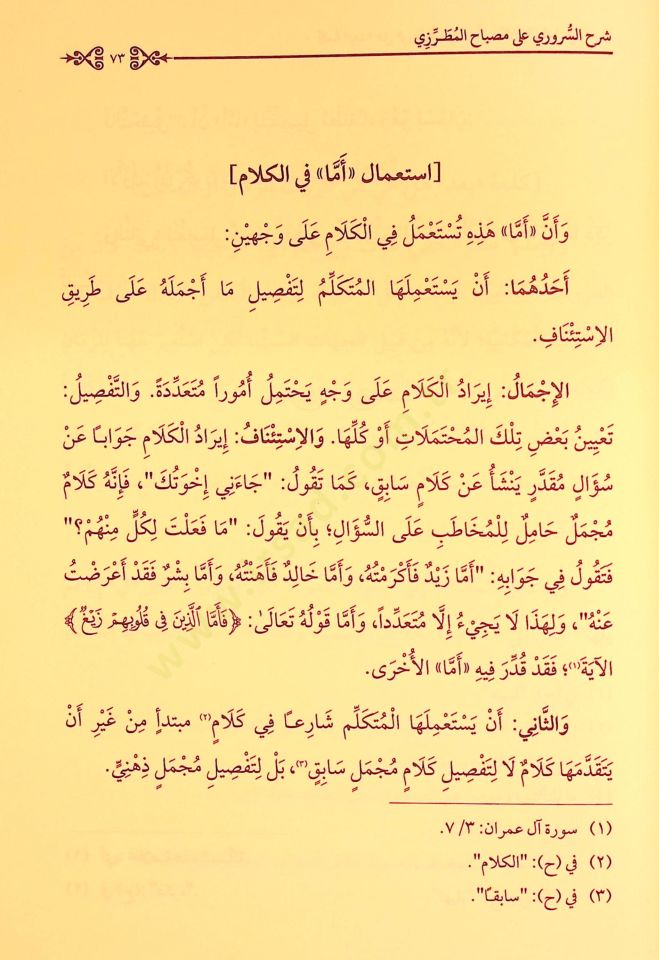 شرح السُّروري على مصباح المُطَرِّزِي
٧٣
[استعمال «أَمَّا» في الكلام]
وَأَنَّ «أَمَّا» هَذِهِ تُسْتَعْمَلُ فِي الْكَلَامِ عَلَى وَجْهَيْنِ:
أَحَدُهُمَا: أَنْ يَسْتَعْمِلَهَا المُتَكَلِّمُ لِتَفْصِيلِ مَا أَجْمَلَهُ عَلَى طَرِيقِ
الِاسْتِئْنَافِ.
الإِجْمَالُ: إِيرَادُ الْكَلَامِ عَلَى وَجْهٍ يَحْتَمِلُ أُمُوراً مُتَعَدِّدَةً. وَالتَّفْصِيلُ:
تَعْيِينُ بَعْضِ تِلْكَ المُحْتَمَلَاتِ أَوْ كُلِّهَا. وَالِاسْتِئْنَافُ: إِيرَادُ الْكَلَامِ جَوَاباً عَنْ
سُؤَالٍ مُقَدَّرٍ يَنْشَأُ عَنْ كَلَامٍ سَابِقٍ، كَمَا تَقُولُ: "جَاءَنِي إِخْوَتُكَ"، فَإِنَّهُ كَلَامٌ
مُجْمَلٌ حَامِلٌ لِلْمُخَاطَبِ عَلَى السُّؤَالِ؛ بِأَنْ يَقُولَ: "مَا فَعَلْتَ لِكُلٍّ مِنْهُمْ؟"
فَتَقُولُ فِي جَوَابِهِ: "أَمَّا زَيْدٌ فَأَكْرَمْتُهُ، وَأَمَّا خَالِدٌ فَأَهَنْتُهُ، وَأَمَّا بِشْرٌ فَقَدْ أَعْرَضْتُ
عَنْهُ"، وَلِهَذَا لَا يَجِيْءُ إِلَّا مُتَعَدِّداً، وَأَمَّا قَوْلُهُ تَعَالَىٰ: ﴿فَأَمَّا ٱلَّذِينَ فِى قُلُوبِهِمۡ زَيۡغٞ﴾
الآيَةَ(١)؛ فَقَدْ قُدِّرَ فِيهِ «أَمَّا» الأُخْرَى.
وَالثَّانِي: أَنْ يَسْتَعْمِلَهَا الْمُتَكَلِّم شَارِعاً فِي كَلَامٍ(٢) مبتدأ مِنْ غَيْرِ أَنْ
يَتَقَدَّمَهَا كَلَامٌ لَا لِتَفْصِيلِ كَلَامٍ مُجْمَلٍ سَابِقٍ(٣)، بَلْ لِتَفْصِيلِ مُجْمَلٍ ذِهْنِيٍّ.
(١) سورة آل عمران: ٧/٣.
(٢) في (ح): "الكلام".
(٣) في (ح): "سابقاً".